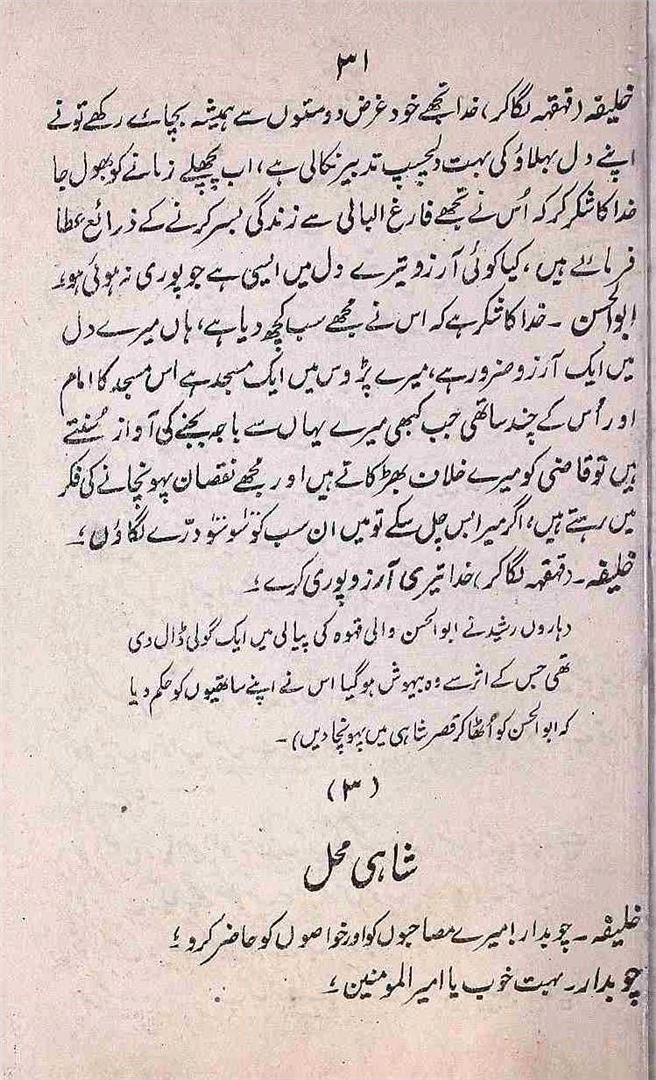 ۳۱
خلیفہ (قہقہہ لگا کر) خدا تجھے خود غرض دوستوں سے ہمیشہ بچائے رکھے تو نے
اپنے دل بہلاؤ کی بہت دلچسپ تدبیر نکالی ہے، اب پچھلے زمانے کو بھول جا
خدا کا شکر کر کہ اُس نے تجھے فارغ البالی سے زندگی بسر کرنے کے ذرائع عطا
فرمائے ہیں، کیا کوئی آرزو تیرے دل میں ایسی ہے جو پوری نہ ہوئی ہو۔
ابوالحسن ۔ خدا کا شکر ہے کہ اس نے مجھے سب کچھ دیا ہے، ہاں میرے دل
میں ایک آرزو ضرور ہے، میرے پڑوس میں ایک مسجد ہے اس مسجد کا امام
اور اُس کے چند ساتھی جب کبھی میرے یہاں سے باجہ بجنے کی آواز سُنتے
ہیں تو قاضی کو میرے خلاف بھڑکاتے ہیں اور مجھے نقصان پہونچانے کی فکر
میں رہتے ہیں، اگر میرا بس چل سکے تو میں ان سب کو سَو سَو درّے لگاؤں ؛
خلیفہ ۔ (قہقہہ لگا کر) خدا تیری آرزو پوری کرے ؛
(ہارون رشید نے ابوالحسن والی قہوہ کی پیالی میں ایک گولی ڈال دی
تھی جس کے اثر سے وہ بیہوش ہو گیا اس نے اپنے ساتھیوں کو حکم دیا
کہ ابوالحسن کو اُٹھا کر قصر شاہی میں پہونچا دیں) ۔
(۳)
شاہی محل
خلیفہ ۔ چوبدار! میرے مصاحبوں کو اور خواصوں کو حاضر کرو ؛
چوبدار ۔ بہت خوب یا امیر المومنین ؛